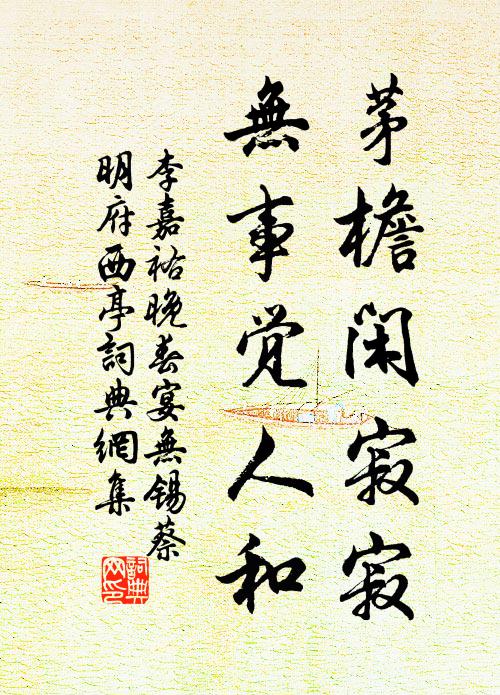 茅檐闲寂寂
無事覚人和
李嘉祐晚春宴無锡蔡
明府西亭詞典網集
詞典
网印